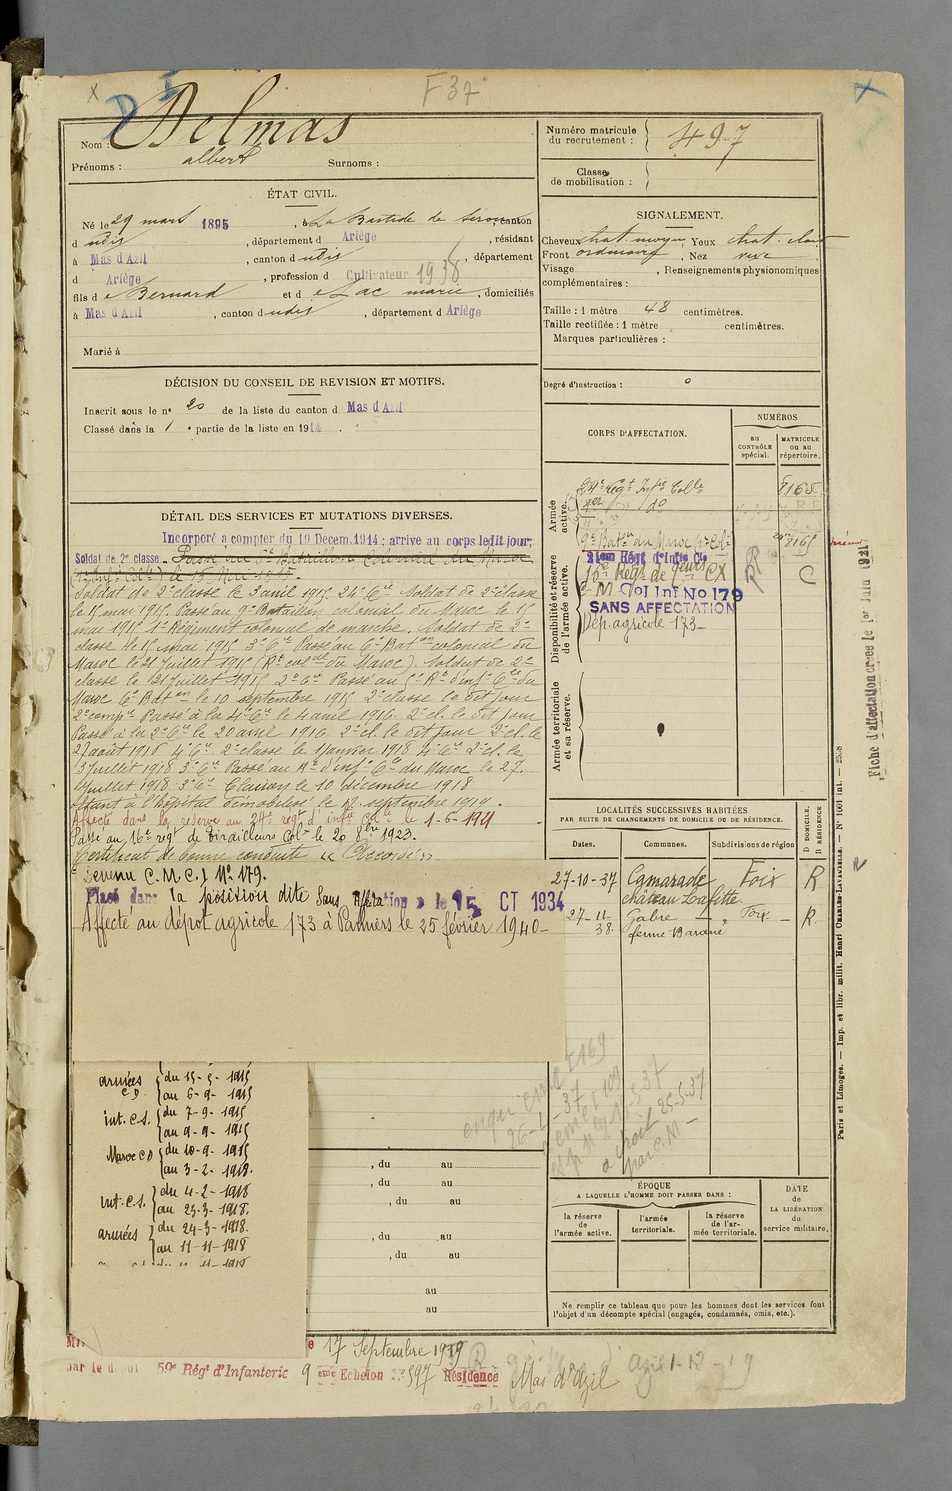 F 37
Delmas
Nom :
Prénoms : albert Surnoms :
Numéro matricule du recrutement : 497
Classe de mobilisation :
ÉTAT CIVIL.
Né le 29 mars 1895, à La Bastide de Serou, canton
d udis, département d Ariège, résidant
à Mas d'Azil, canton d udis, département
d Ariège, profession d Cultivateur 1938
fils de Bernard et de Lac marie, domiciliés
à Mas d'Azil, canton d udis, département d Ariège
Marié à
SIGNALEMENT.
Cheveux chat. moyen Yeux chat. clair
Front ordinaire, Nez
Visage , Renseignements physionomiques
complémentaires :
Taille : 1 mètre 48 centimètres.
Taille rectifiée : 1 mètre centimètres.
Marques particulières :
Degré d'instruction : 0
DÉCISION DU CONSEIL DE REVISION ET MOTIFS.
Inscrit sous le n° 20 de la liste du canton d Mas d'Azil
Classé dans la 1e partie de la liste en 1914.
DÉTAIL DES SERVICES ET MUTATIONS DIVERSES.
Incorporé à compter du 19 Decem. 1914 ; arrivé au corps ledit jour;
Soldat de 2e classe. Passé au Bataillon Colonial du Maroc
Soldat de 2e classe le 3 avril 1915 24e Cie Soldat de 2e classe
le 15 mai 1915. Passé au 9e Bataillon colonial du Maroc le 15
mai 1915 1er Régiment colonial de marche. Soldat de 2e
classe le 15 mai 1915 3e Cie Passé au 6e Baton colonial du
Maroc le 21 Juillet 1915 (Rt colal du Maroc). Soldat de 2e
classe le 21 Juillet 1915 2e Cie Passé au Rt d'infie Cle du
Maroc 6e Baton le 10 septembre 1915 2e classe le dit jour
2e compie Passé à la 4e Cie le 4 avril 1916. 2e cl. le dit jour
Passé à la 2e Cie le 20 avril 1916. 2e cl. le dit jour 2e cl. le
2 août 1916 4e Cie 2e classe le 1 janvier 1918 4e Cie 2e cl. le
3 Juillet 1918 3e Cie Passé au Rt d'infie Cle du Maroc le 27
Juillet 1918 3e Cie Clairon le 10 décembre 1918
Etant à l'hôpital démobilisé le 12 septembre 1919.
Affecté dans la réserve au 24e regt d'infie Colle le 1-6-1921
Passé au 16e regt de tirailleurs Colx le 20 8bre 1923.
Certificat de bonne conduite "Accordé"
Devenu C.M.C.I N° 179.
Placé dans la position dite Sans Affectation le 15 OCT 1934
Affecté au dépôt agricole 173 à Pamiers le 25 février 1940-
armées C.D. { du 15-5-1915
au 6-9-1915
int. C.S. { du 7-9-1915
au 9-9-1915
Maroc C D { du 10-9-1915
au 3-2-1918.
int. C.S. { du 4-2-1918
au 23-3-1918.
armées { du 24-3-1918.
au 11-11-1918
, du au
, du au
, du au
, du au
, du au
au
au
CORPS D'AFFECTATION.
NUMÉROS
au CONTRÔLE spécial.
MATRICULE ou au répertoire.
Armée active.
24e Regt Infie Colle 8165
do
9e Baton du Maroc 1er Col 8165
Disponibilité et réserve de l'armée active.
21eme Regt d'Infie Cle
16e Regt de Tieurs CX
C M Col Inf No 179 C
SANS AFFECTATION
Dép. agricole 173-
Armée territoriale et sa réserve.
Fiche d'affectation créée le 1er Juin 1921
LOCALITÉS SUCCESSIVES HABITÉES
PAR SUITE DE CHANGEMENTS DE DOMICILE OU DE RÉSIDENCE.
Dates. Communes. Subdivisions de région D DOMICILE. R RÉSIDENCE
27-10-37 Camarade Foix R
château Lafitte
27-11-38 Gabre - Foix - R.
ferme Barané
enquête
26-1-37
25-5-37
ÉPOQUE
A LAQUELLE L'HOMME DOIT PASSER DANS :
la réserve de l'armée active.
l'armée territoriale.
la réserve de l'armée territoriale.
DATE de LA LIBÉRATION du service militaire.
Ne remplir ce tableau que pour les hommes dont les services font
l'objet d'un décompte spécial (engagés, condamnés, omis, etc.).
Paris et Limoges. — Imp. et libr. milit. Henri CHARLES-LAVAUZELLE. — N° 1601 int. —
le 17 Septembre 1919
par le dépôt 59e Régt d'Infanterie 9 eme Echelon N° 597 Résidence Mas d'Azil